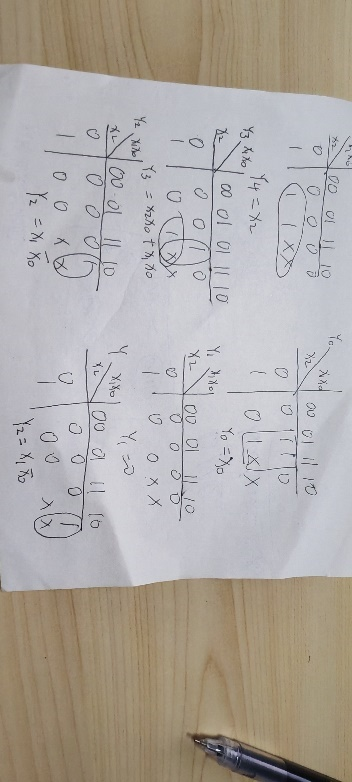 X1X0
X2 00 01 11 10
0 0 0 0 0
1 1 1 X X
Y4 = X2
Y3 X1X0
X2 00 01 01 11 10
0 0 0 1 0
1 0 1 X X
Y3 = X2X0 + X1X0
Y2 X1X0
X2 00 01 11 10
0 0 0 0 1
1 0 0 X X
Y2 = X1X̄0
Y0 X1X0
X2 00 01 11 10
0 0 1 1 0
1 0 1 X X
Y0 = X0
Y1 X1X0
X2 00 01 11 10
0 0 0 0 0
1 0 0 X X
Y1 = 0
Y X1X0
X2 00 01 11 10
0 0 0 0 1
1 0 0 X X
Y2 = X1X̄0